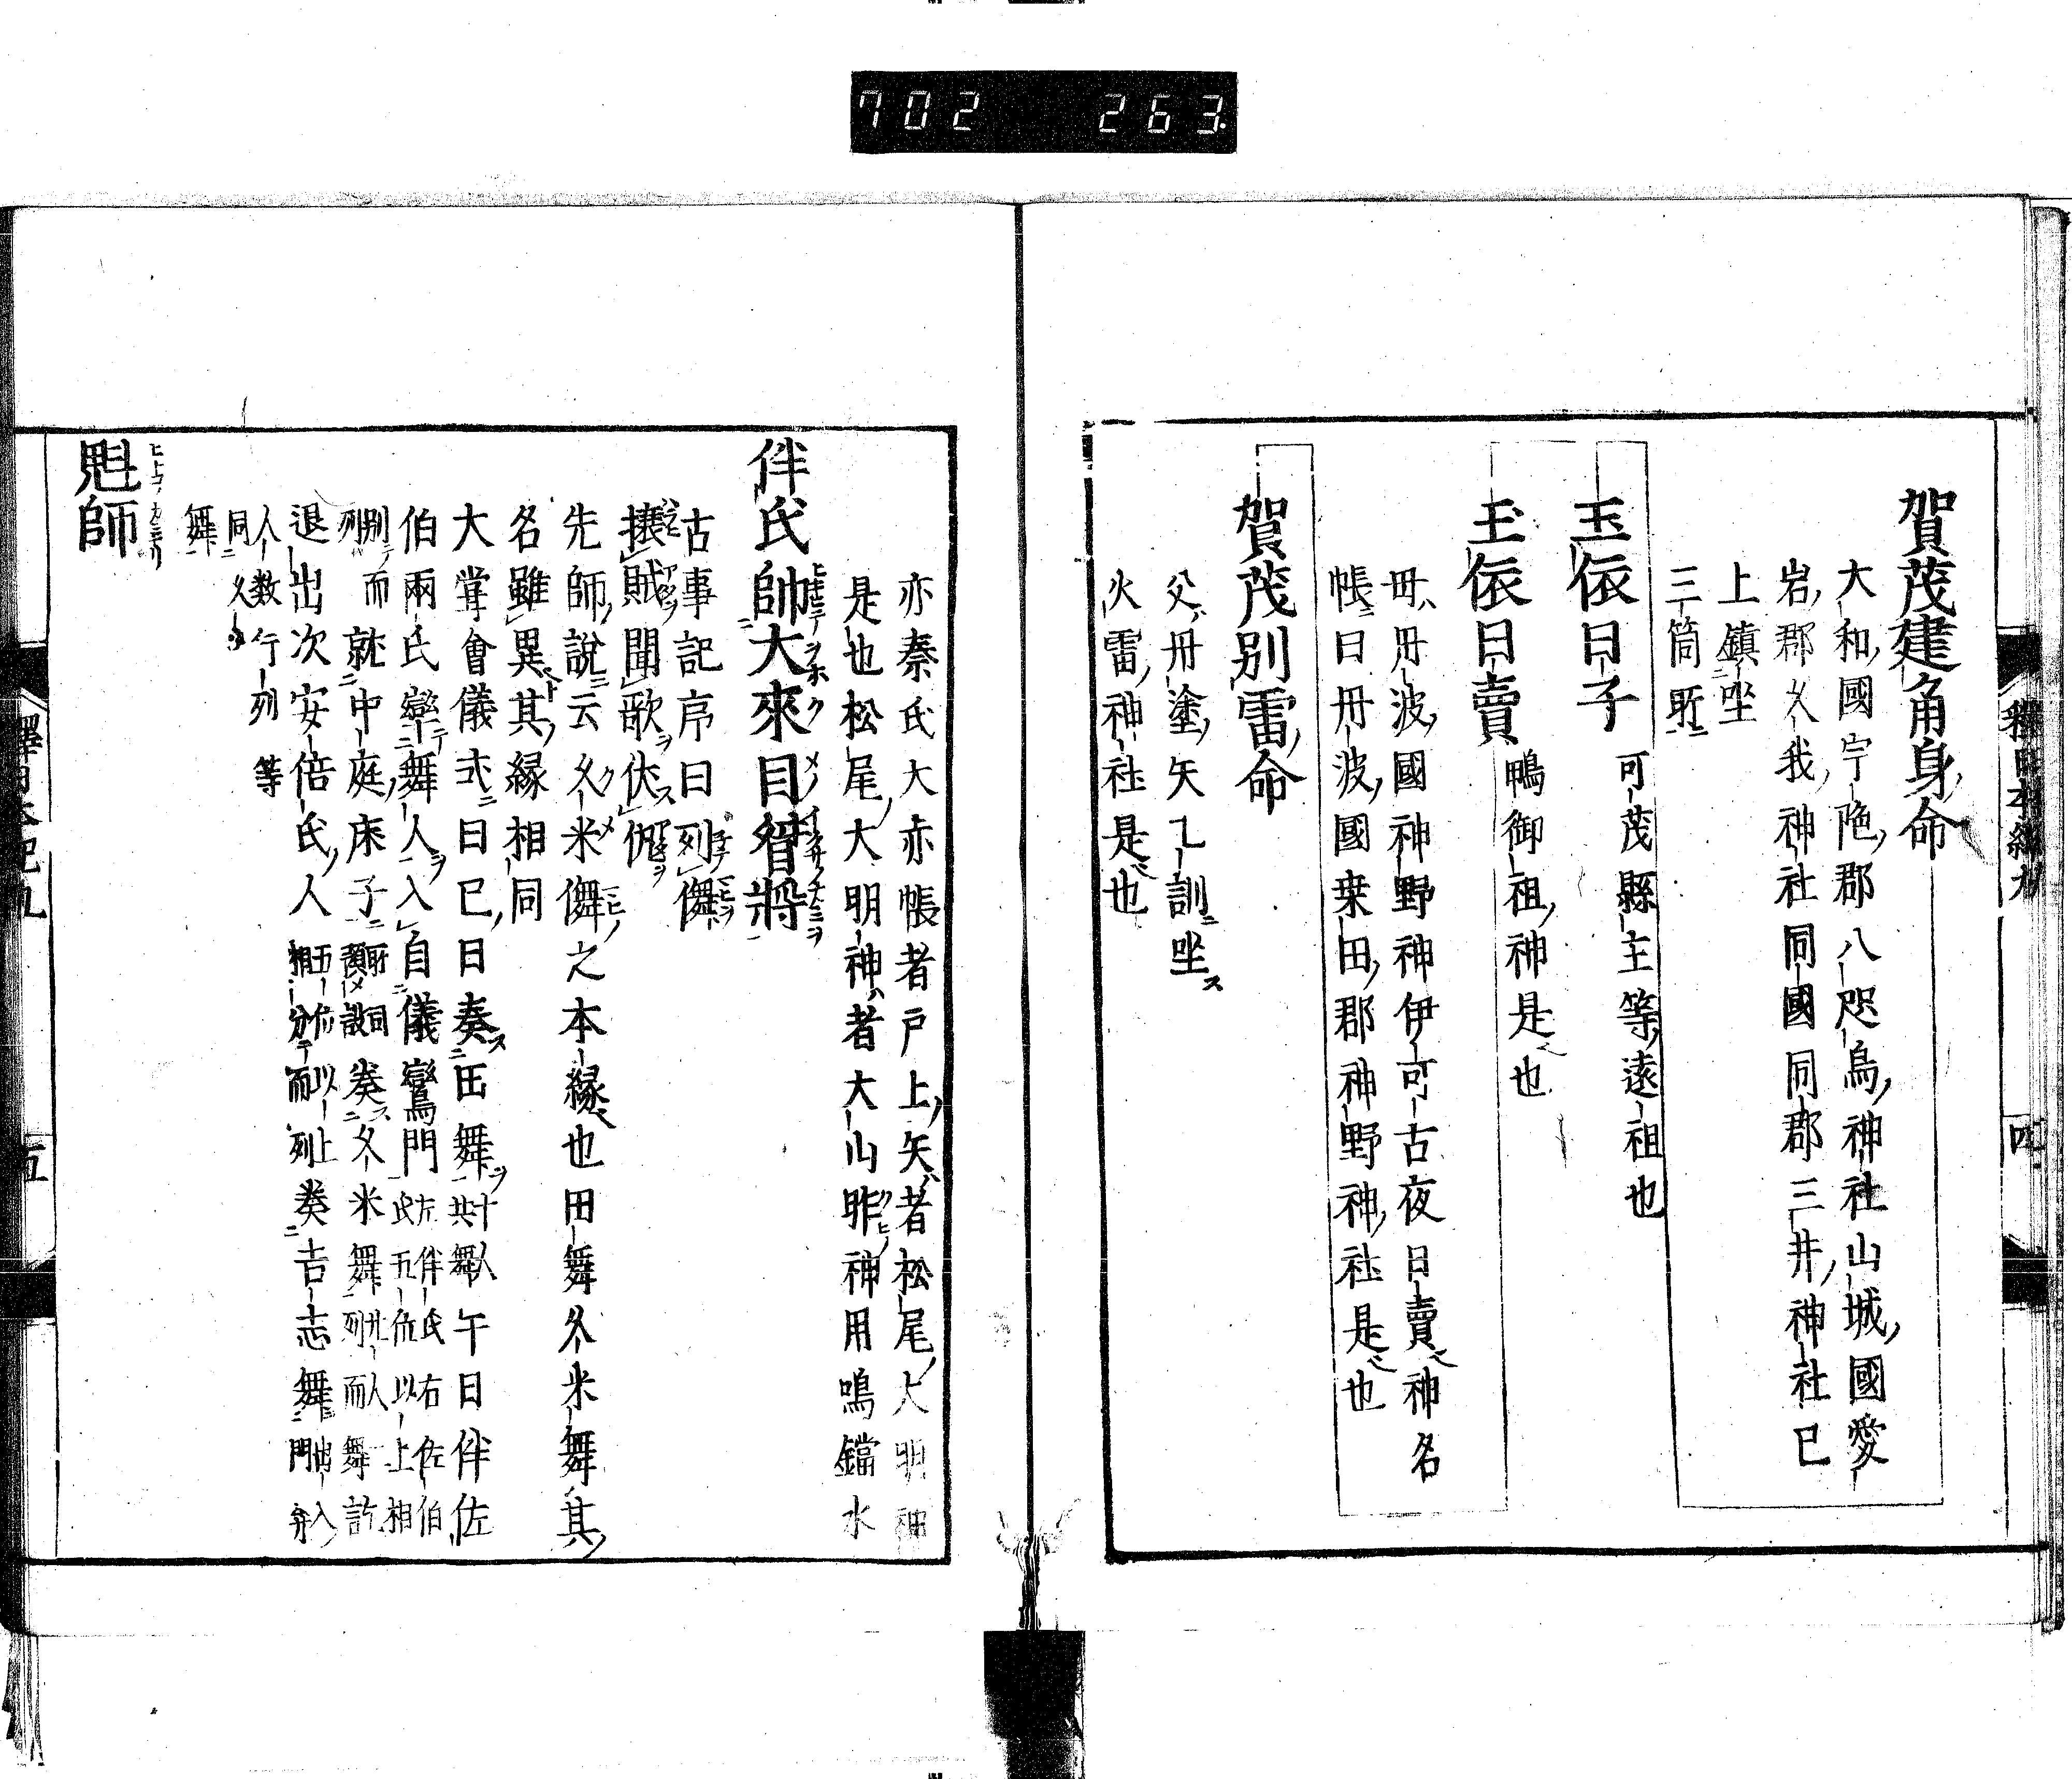 702 263
釋日本紀九
四
賀茂建角身命
大和國宇陁郡八咫烏神社山城國愛
宕郡久我神社同國同郡三井神社已
上鎮坐
三箇所
玉依日子
可茂縣主等遠祖也
玉依日賣
鴨御祖神是也
母丹波國神野神伊可古夜日賣神名
帳曰丹波國桒田郡神野神社是也
賀茂別雷命
父丹塗矢乙訓坐
火雷神社是也
亦秦氏大亦帳者戸上矢者松尾大明神
是也松尾大明神者大山咋神用鳴鏑水
伴氏帥大來目督將
古事記序曰列儛
攘賊聞歌伏仇
先師說云久米儛之本緣也田舞久米舞其
名雖異其緣相同
大甞會儀式曰巳日奏田舞十人共歌舞午日伴佐
伯兩氏率舞人入自儀鸞門左伴氏右佐伯氏五位以上相
別而列就中庭床子所司預設奏久米舞廿人列而舞訖
退出次安倍氏人五位以上相分而列奏吉志舞
人數行列等
同久米
舞
魁師
釋日本紀九
五